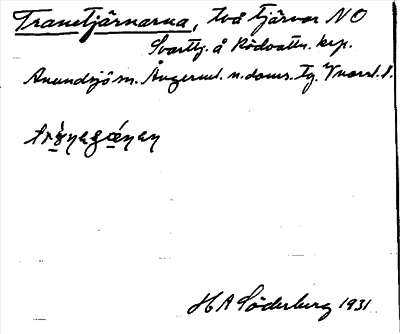 Tranetjärnarna, två tjärnar NO
Svarttj. å Rödvattn. krp.
Anundsjö sn. Ångerml. n. doms. tg. Vnorrl. l.
H A Söderberg 1931